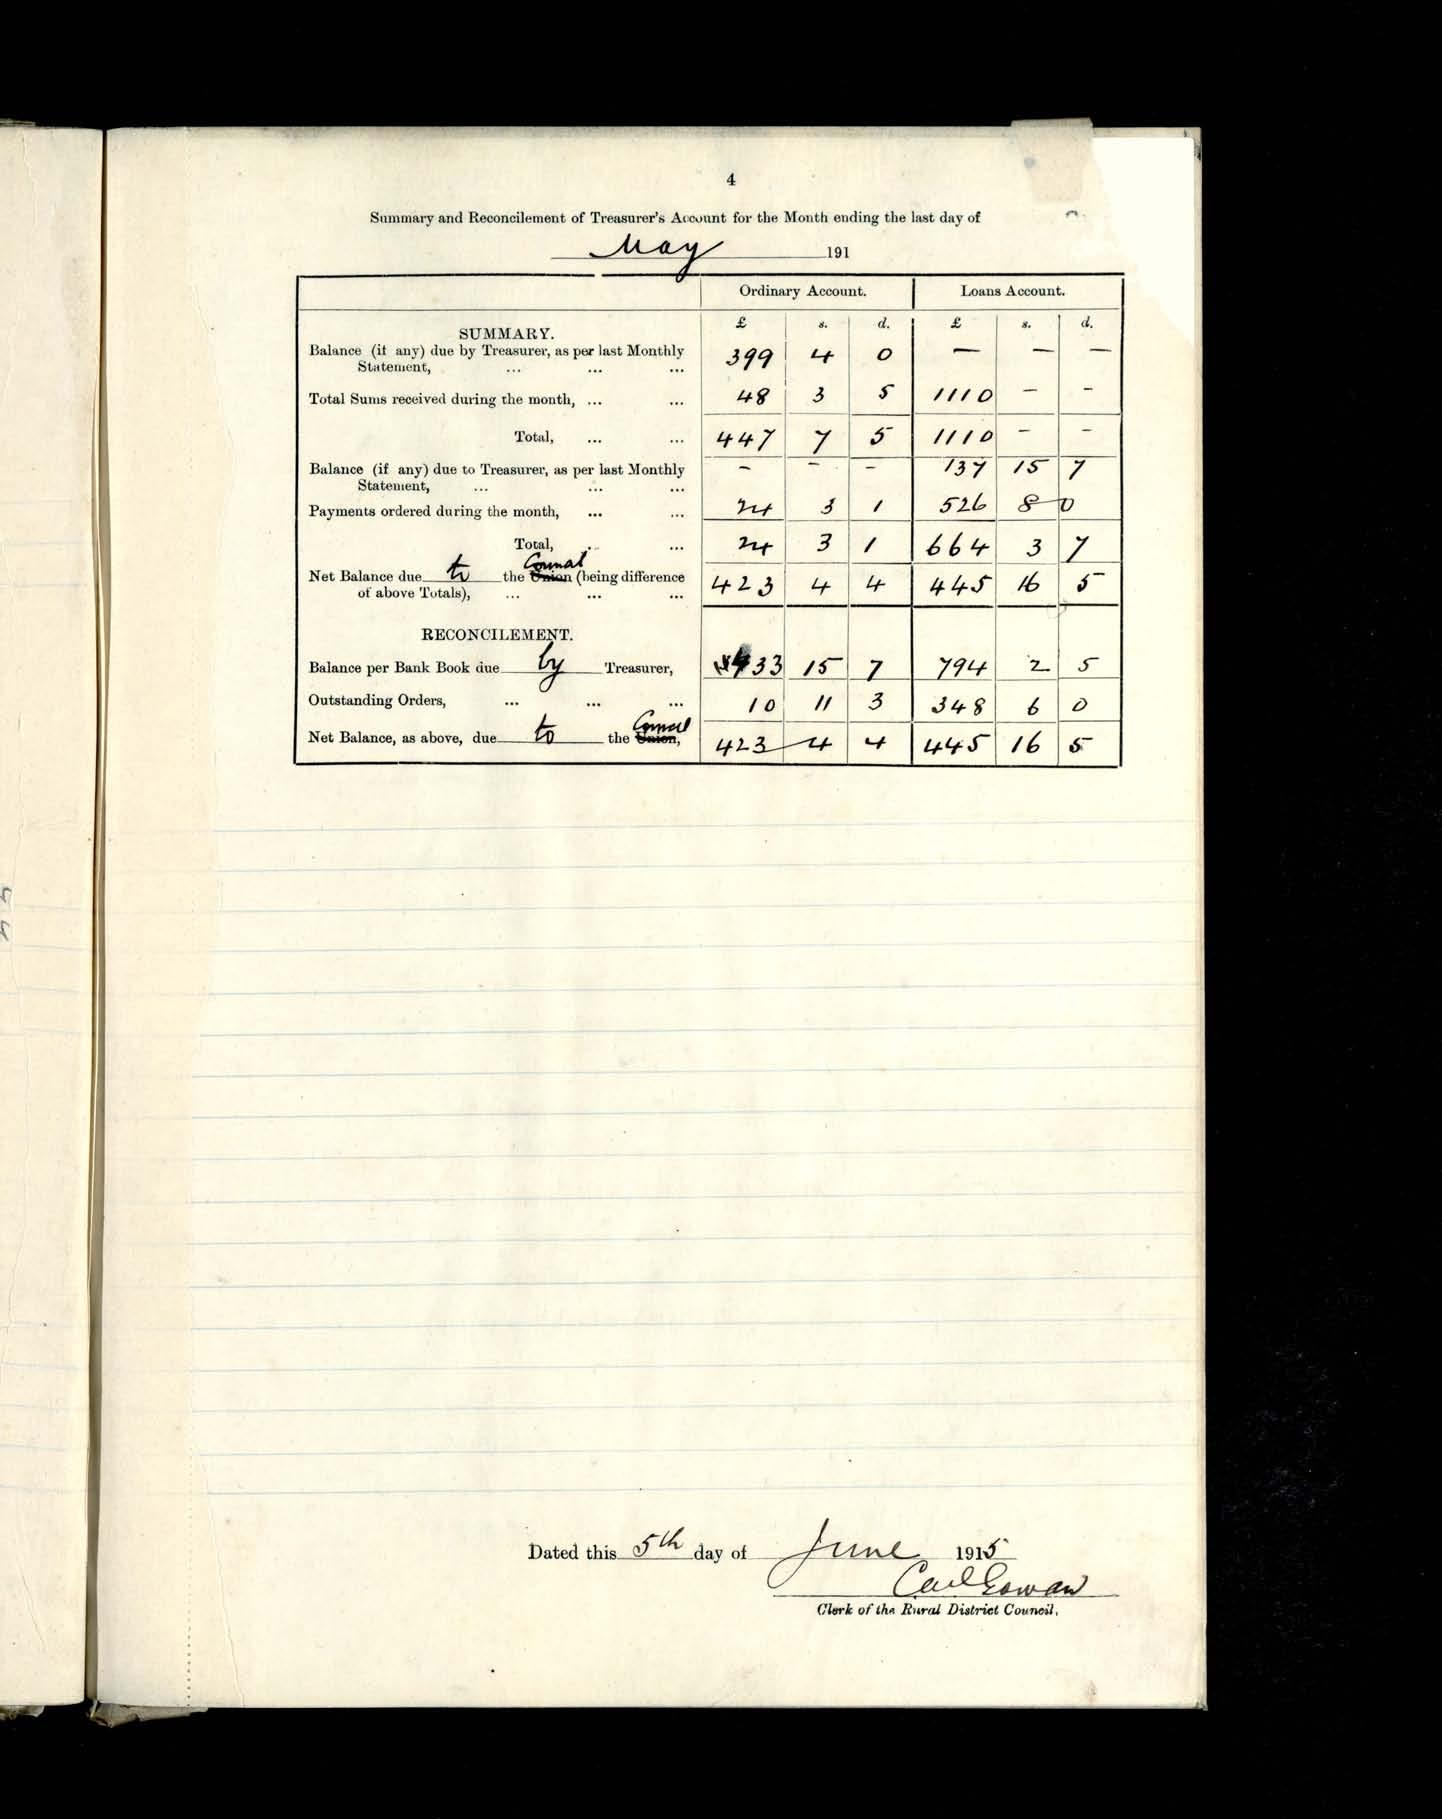 4
Summary and Reconcilement of Treasurer's Account for the Month ending the last day of
May 191
Ordinary Account. Loans Account.
£ s. d. £ s. d.
SUMMARY.
Balance (if any) due by Treasurer, as per last Monthly
Statement, ... ... ... 399 4 0 — — —
Total Sums received during the month, ... ... 48 3 5 1110 - -
Total, ... ... 447 7 5 1110 - -
Balance (if any) due to Treasurer, as per last Monthly
Statement, ... ... ... - - - 137 15 7
Payments ordered during the month, ... ... 24 3 1 526 8 0
Total, ... ... 24 3 1 664 3 7
Council
Net Balance due to the Union (being difference
of above Totals), ... ... ... 423 4 4 445 16 5
RECONCILEMENT.
Balance per Bank Book due by Treasurer, 433 15 7 794 2 5
Outstanding Orders, ... ... ... 10 11 3 348 6 0
Council
Net Balance, as above, due to the Union, 423 4 4 445 16 5
Dated this 5th day of June 1915
Clerk of the Rural District Council.